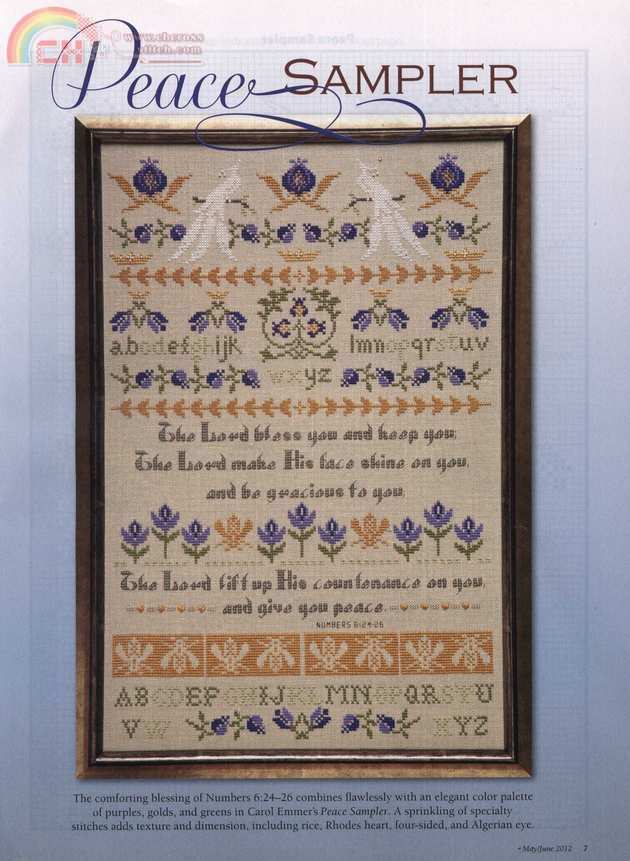 www.chcross
stitch.com
Peace SAMPLER
abcdefghijk lmnopqrstuv
wxyz
The Lord bless you and keep you;
The Lord make His face shine on you,
and be gracious to you;
The Lord lift up His countenance on you,
and give you peace.
NUMBERS 6:24-26
ABCDEFGHIJKLMNOPQRSTU
VW XYZ
The comforting blessing of Numbers 6:24–26 combines flawlessly with an elegant color palette
of purples, golds, and greens in Carol Emmer's Peace Sampler. A sprinkling of specialty
stitches adds texture and dimension, including rice, Rhodes heart, four-sided, and Algerian eye.
• May/June 2012 7